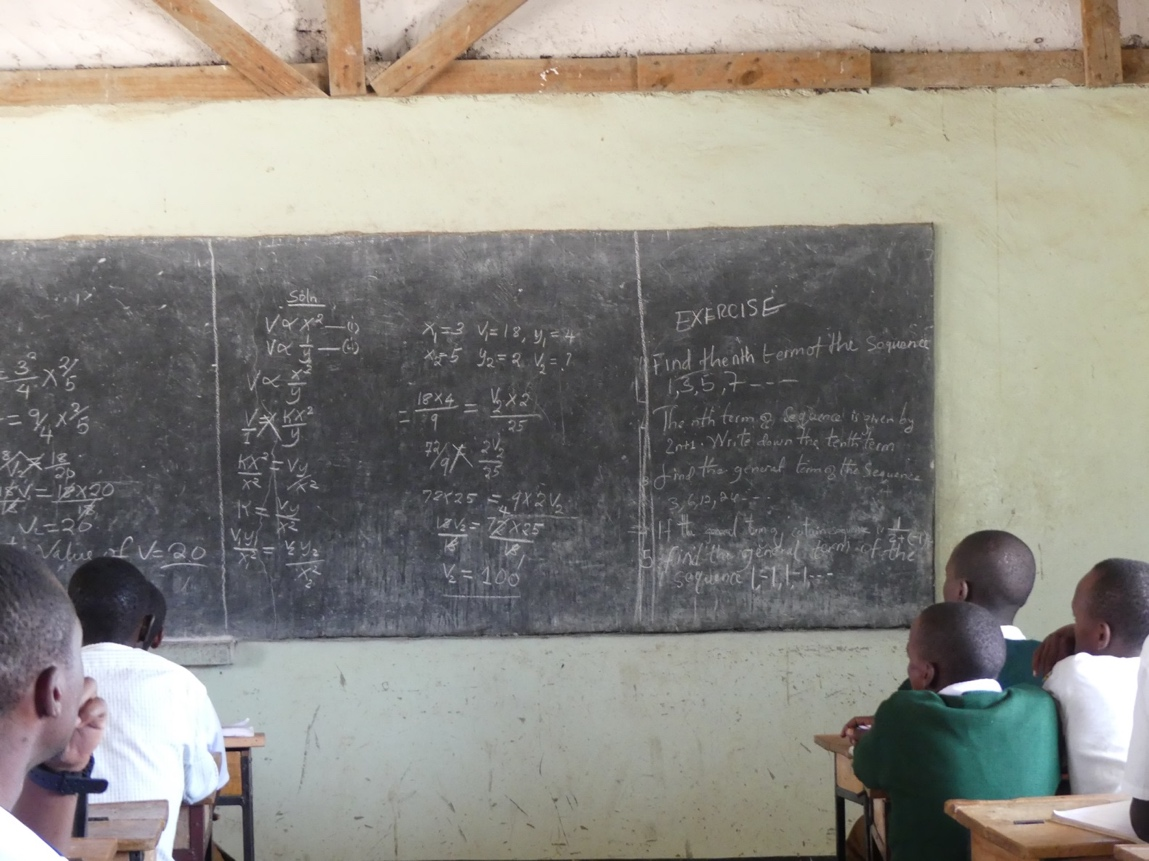 = 3²/4 × 2/5
= 9/4 × 2/5
18V = 18×20
V = 20
Value of V = 20
Soln
V ∝ x² — (i)
V ∝ 1/y — (ii)
V ∝ x²/y
V/1 = Kx²/y
Kx²/x² = Vy/x²
K = Vy/x²
V₁y₁/x₁² = V₂y₂/x₂²
x₁=3 V₁=18, y₁=4
x₂=5 y₂=2 V₂=?
= 18×4/9 = V₂×2/25
72/9 = 2V₂/25
72×25 = 9×2V₂
18V₂/18 = 72×25/18
V₂ = 100
EXERCISE
Find the nth term of the sequence
1, 3, 5, 7 - - -
The nth term of sequence is given by
2n+1. Write down the tenth term
find the general term of the sequence
3, 6, 12, 24 - - -
If the
5 find the general term of the
sequence 1, -1, 1, -1, ...